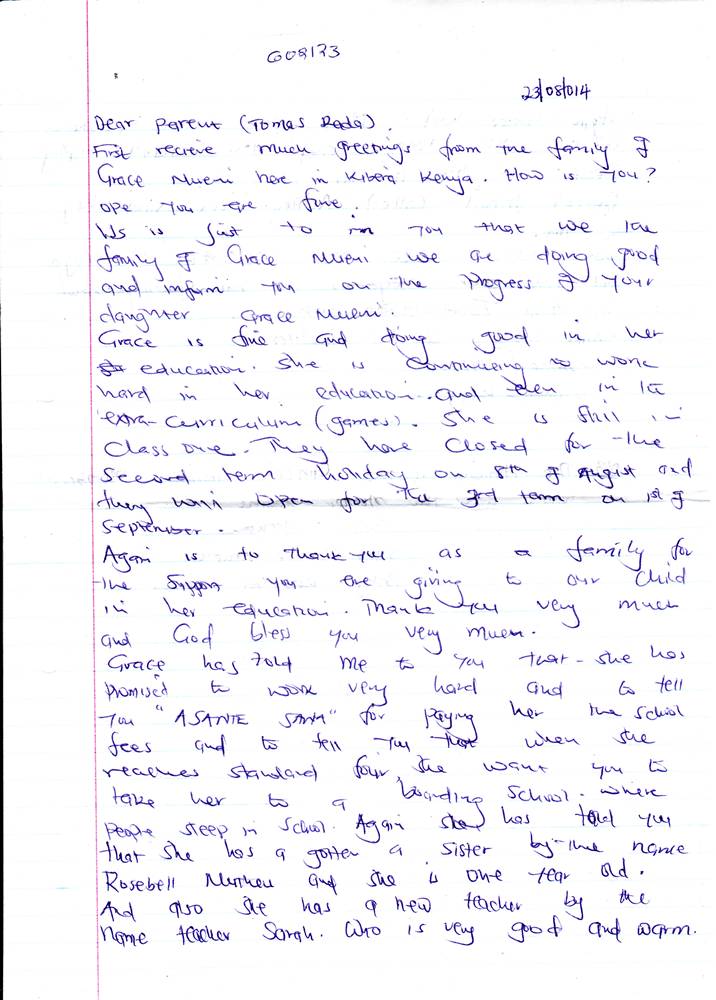 G08173
23/08/014
Dear parent (Tomas Rada).
First recieve much greetings from the family of
Grace Mueni here in Kibera Kenya. How is you?
ope you are fine.
is just to in you that we the
family of Grace Mueni we are doing good
and inform you on the Progress of your
daughter Grace Mueni.
Grace is fine and doing good in her
education. She is continueing to work
hard in her education. and even in the
extra-curriculum (games). She is still in
class one. They have closed for the
second term holiday on 8th of August and
they will open for the 3rd term on 1st of
September.
Again is to thank you as a family for
the support you are giving to our child
in her education. Thank you very much
and God bless you very much.
Grace has told me to you that she has
promised to work very hard and to tell
you "ASANTE SANA" for paying her the school
fees and to tell you that when she
reaches standard four, she want you to
take her to a boarding school. where
people sleep in school. Again she has told you
that she has a gotten a sister by the name
Rosebell and she is one year old.
And also she has a new teacher by the
name teacher Sarah. Who is very good and warm.